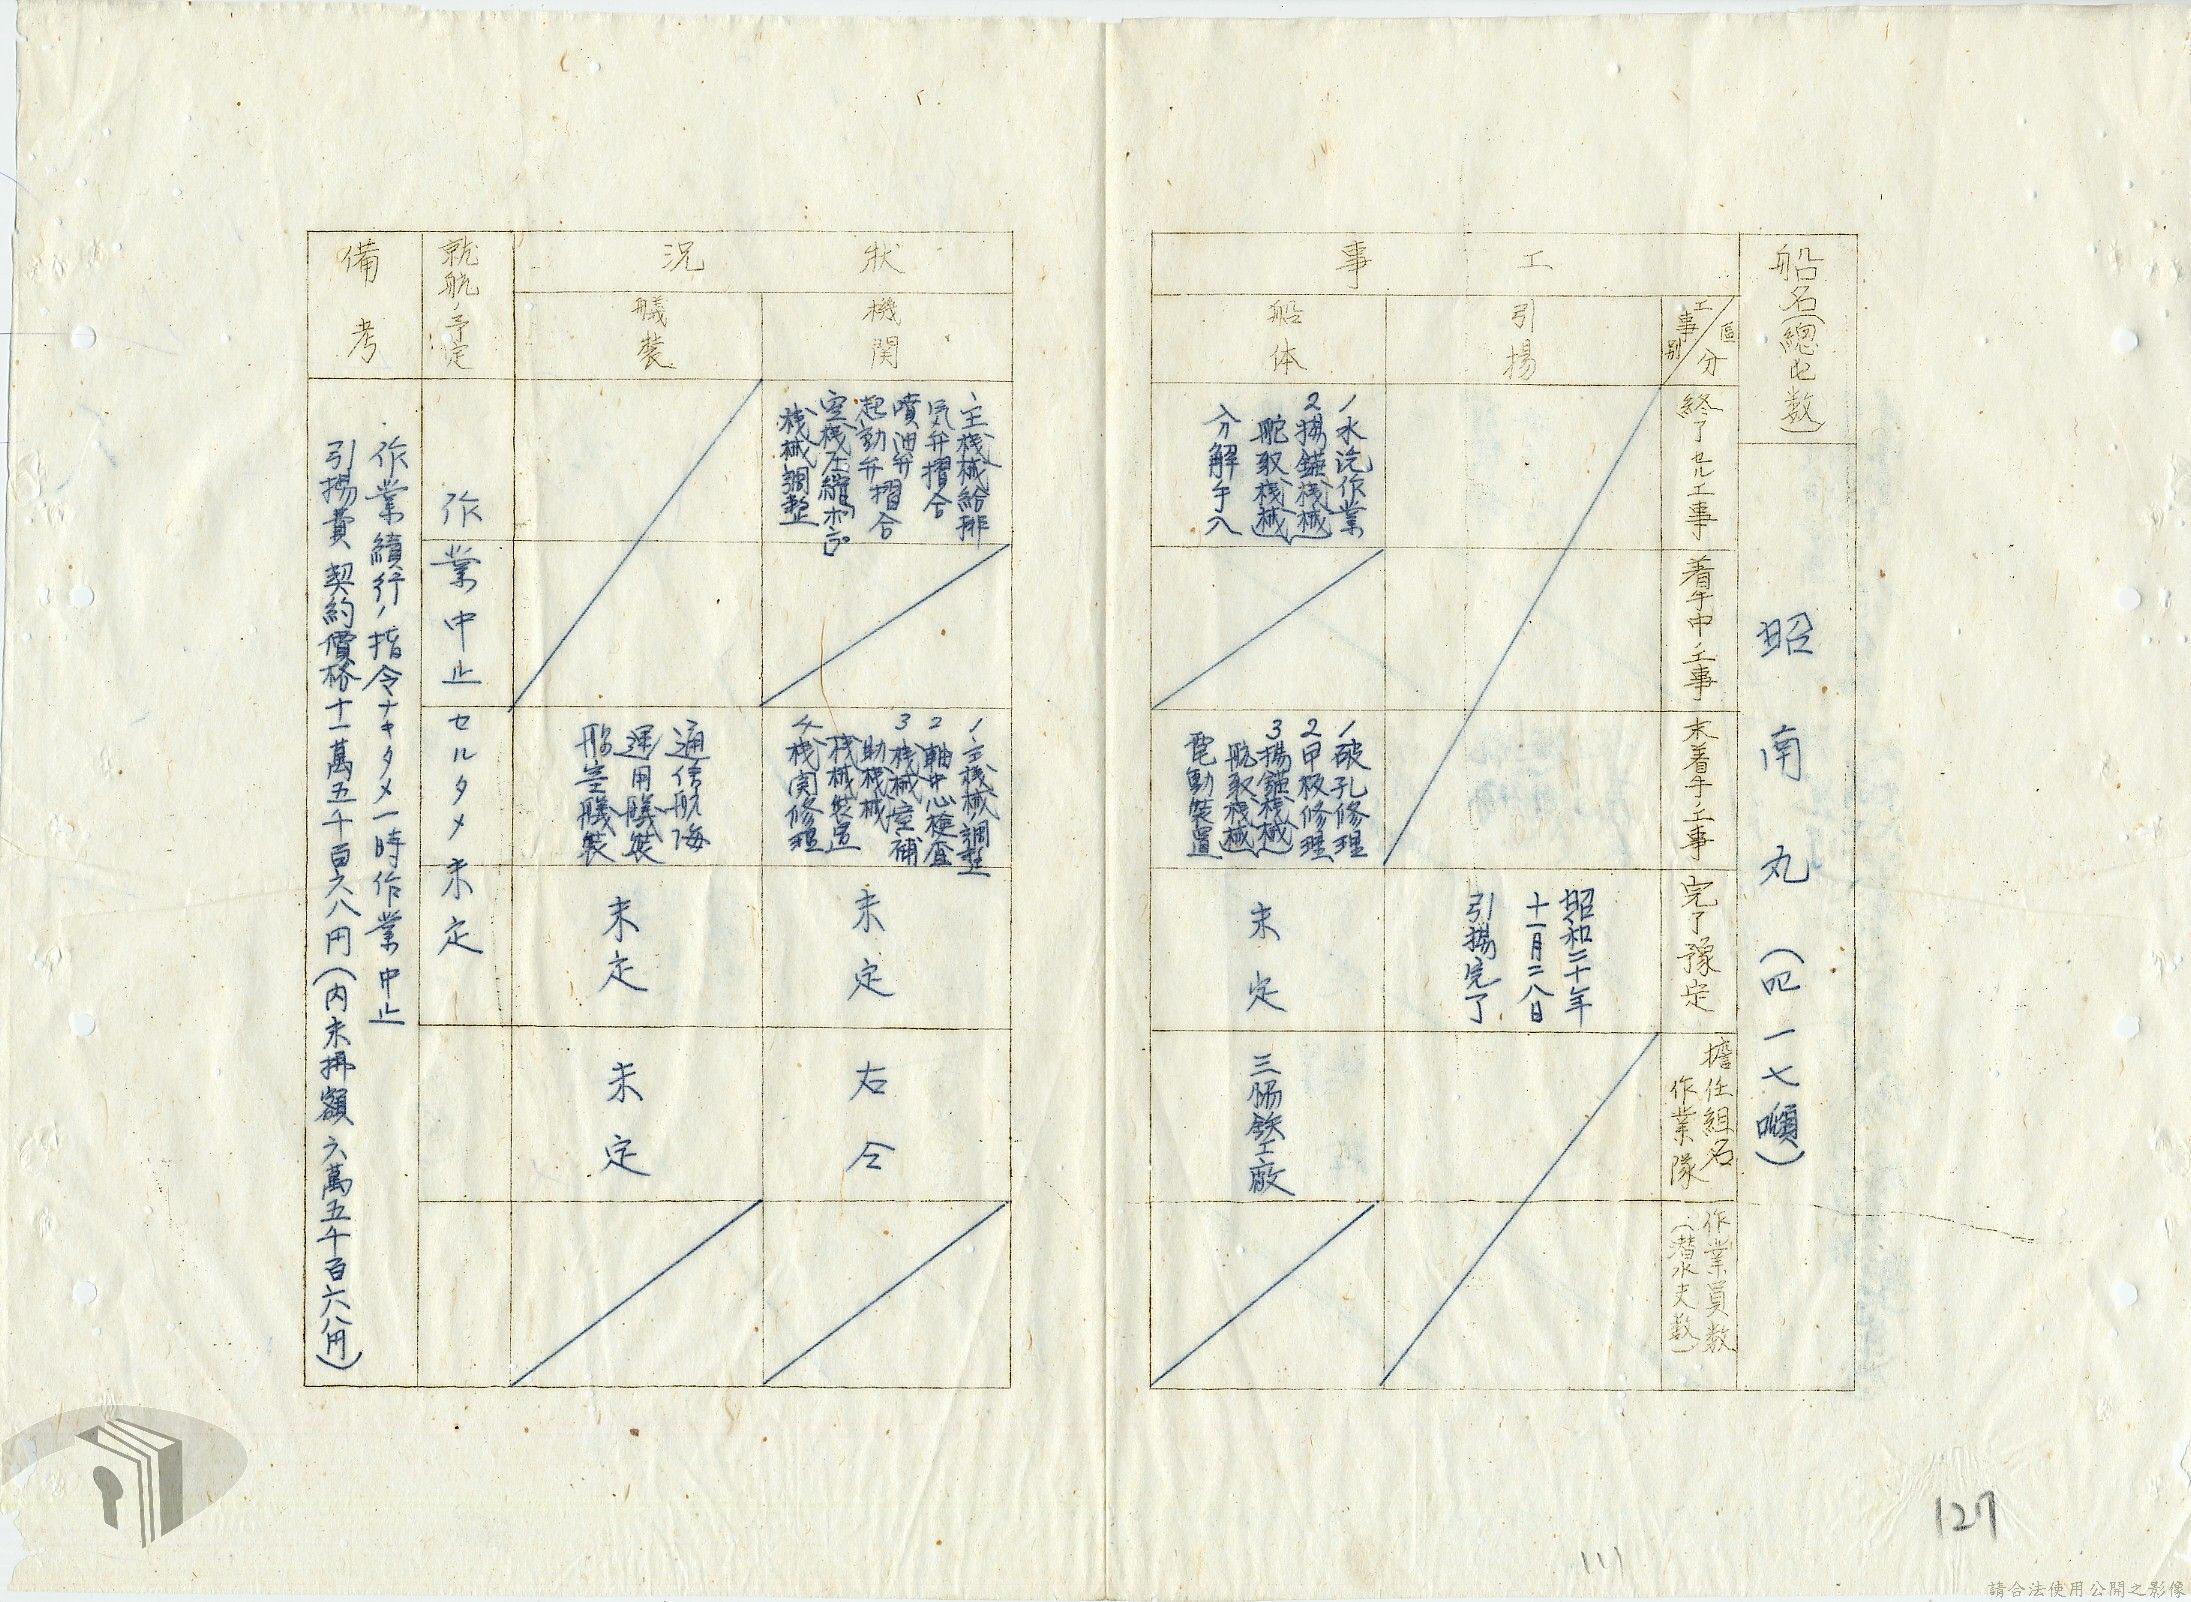 船名(總屯数)
昭南丸(四一七噸)
工事
區分
工事別
終了セル工事
着手中ノ工事
未着手ノ工事
完了豫定
擔任組名
作業隊
作業員数
(潜水夫数)
引揚
昭和二十年
十一月二八日
引揚完了
船体
1水洗作業
2揚錨桟械
舵取桟械
分解手入
1破孔修理
2甲板修理
3揚錨桟械
舵取桟械
電動装置
未定
三協鉄工廠
狀況
機関
、主桟械給排
気弁摺合
噴油弁
起動弁摺合
桟械調整
1、主機械調整
2軸中心検査
3桟械室補
助桟械
桟械装置
4桟関修理
未定
右仝
艤装
通信航海
運用艤装
船室艤装
未定
未定
就航ノ予定
作業中止セルタメ未定
備考
作業續行ノ指令ナキタメ一時作業中止
引揚費契約價格十一萬五千百六八円(内未拂額六萬五千百六八円)
127
請合法使用公開之影像